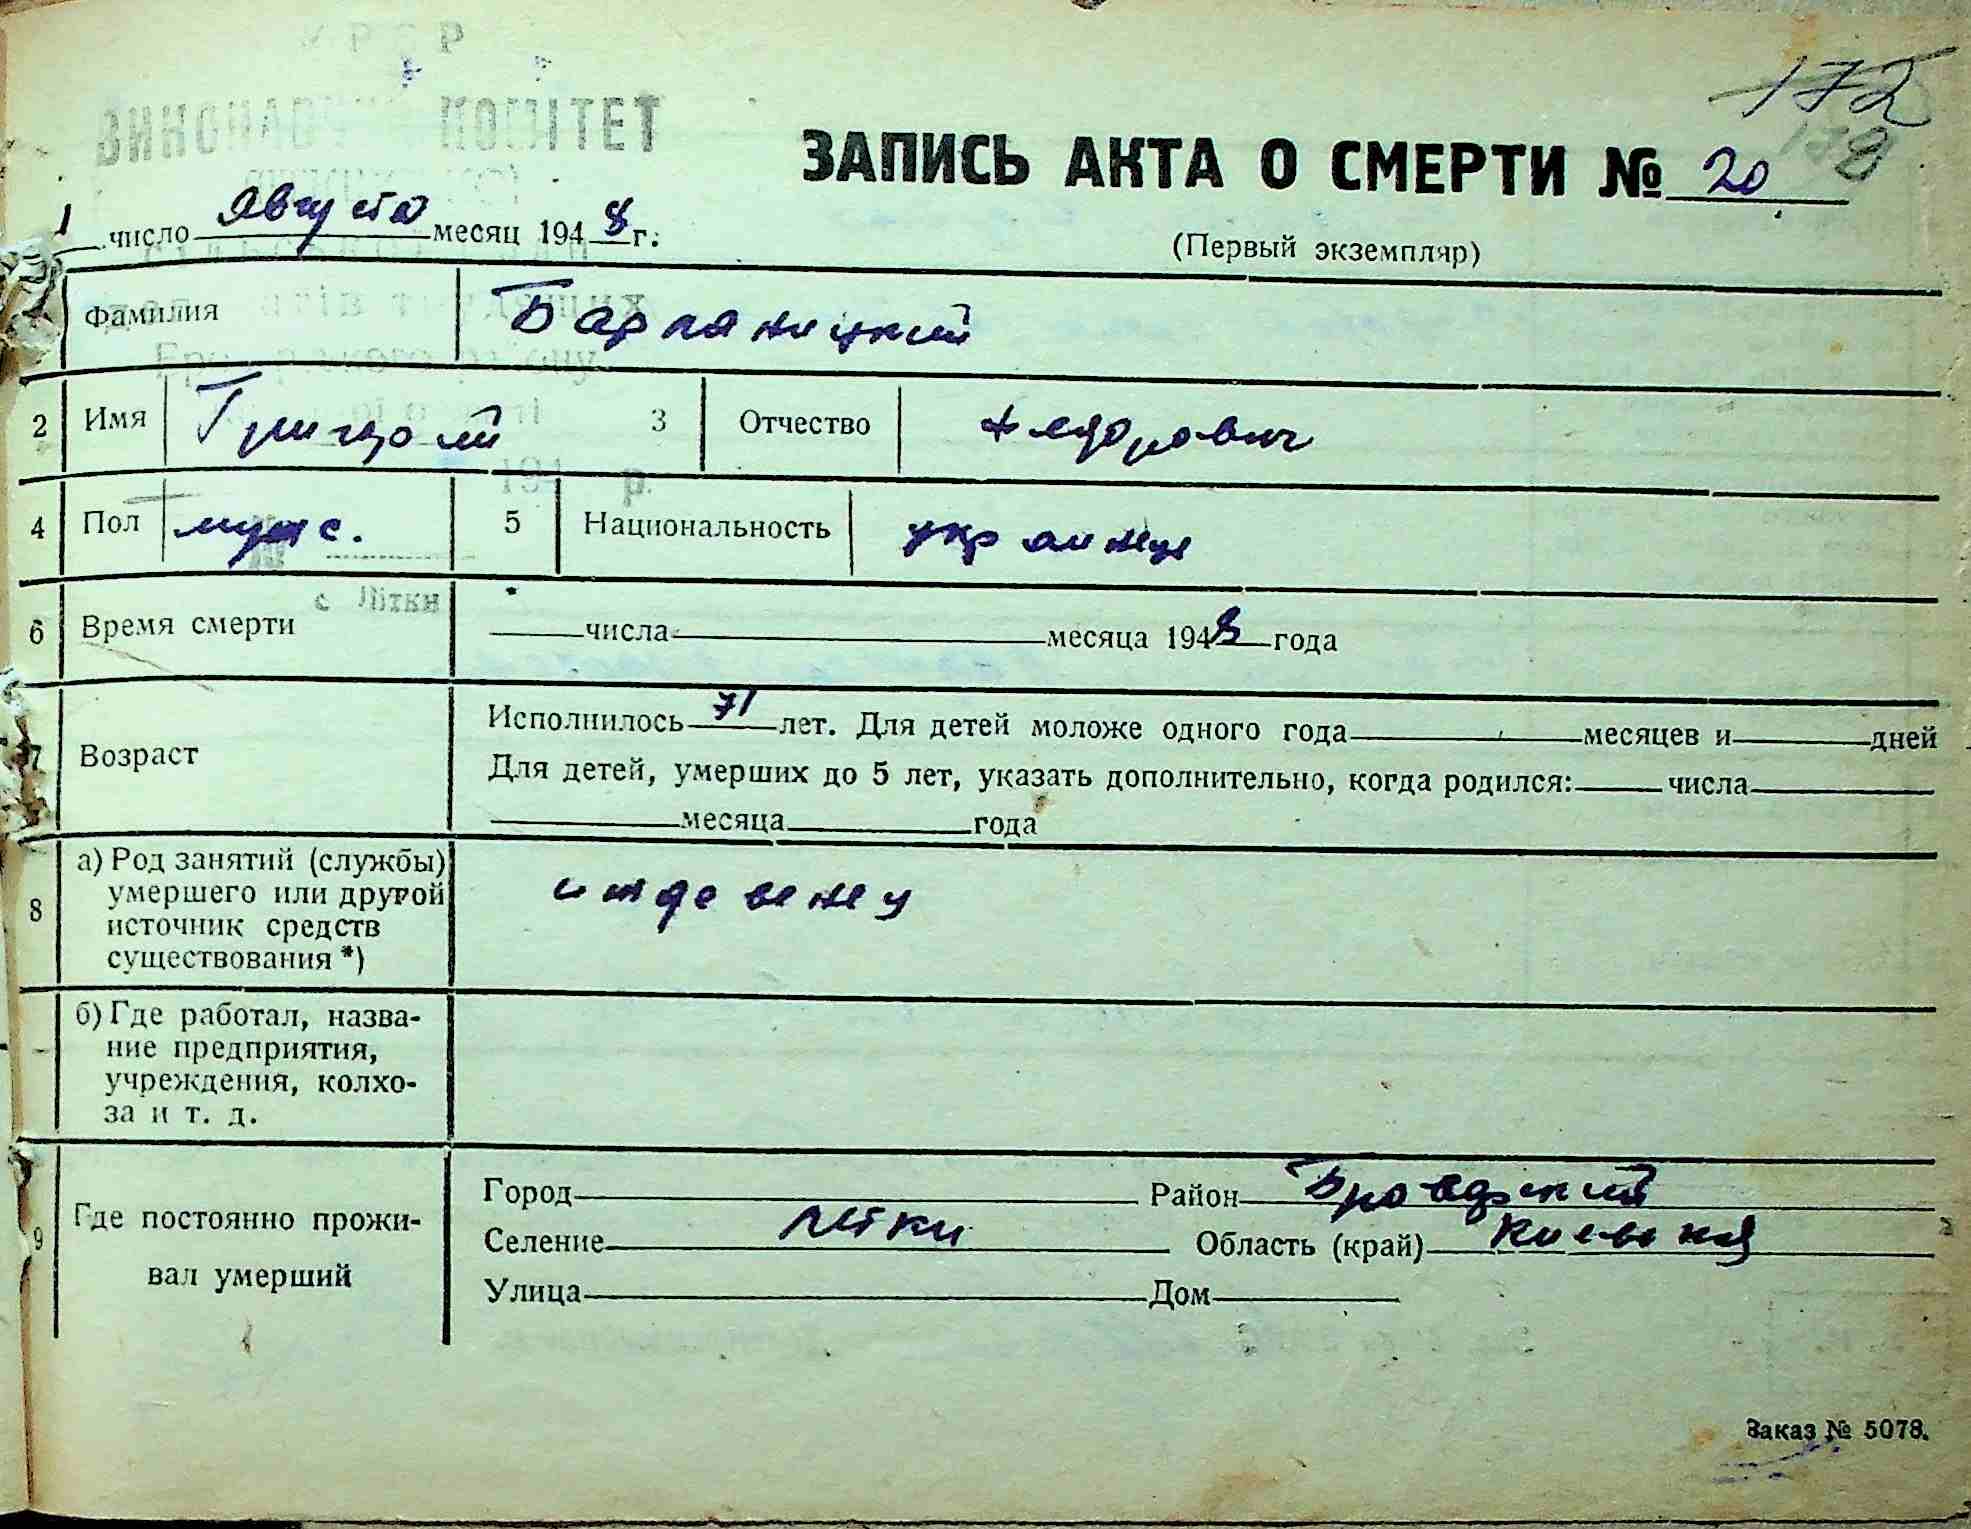 УРСР
ВИКОНАВЧИЙ КОМІТЕТ
172
178
ЗАПИСЬ АКТА О СМЕРТИ № 20
1 число Августа месяц 1948 г.
(Первый экземпляр)
Фамилия Барланицкий
2 Имя Григорий 3 Отчество Федорович
194 р.
4 Пол муж. 5 Национальность украинец
№
с Літки
6 Время смерти числа месяца 1948 года
7 Возраст Исполнилось 71 лет. Для детей моложе одного года месяцев и дней
Для детей, умерших до 5 лет, указать дополнительно, когда родился: числа
месяца года
8 а) Род занятий (службы)
умершего или другой
источник средств
существования *)
иждевенец
б) Где работал, назва-
ние предприятия,
учреждения, колхо-
за и т. д.
9 Где постоянно прожи-
вал умерший
Город Район Броварский
Селение Летки Область (край) Киевская
Улица Дом
Заказ № 5078.